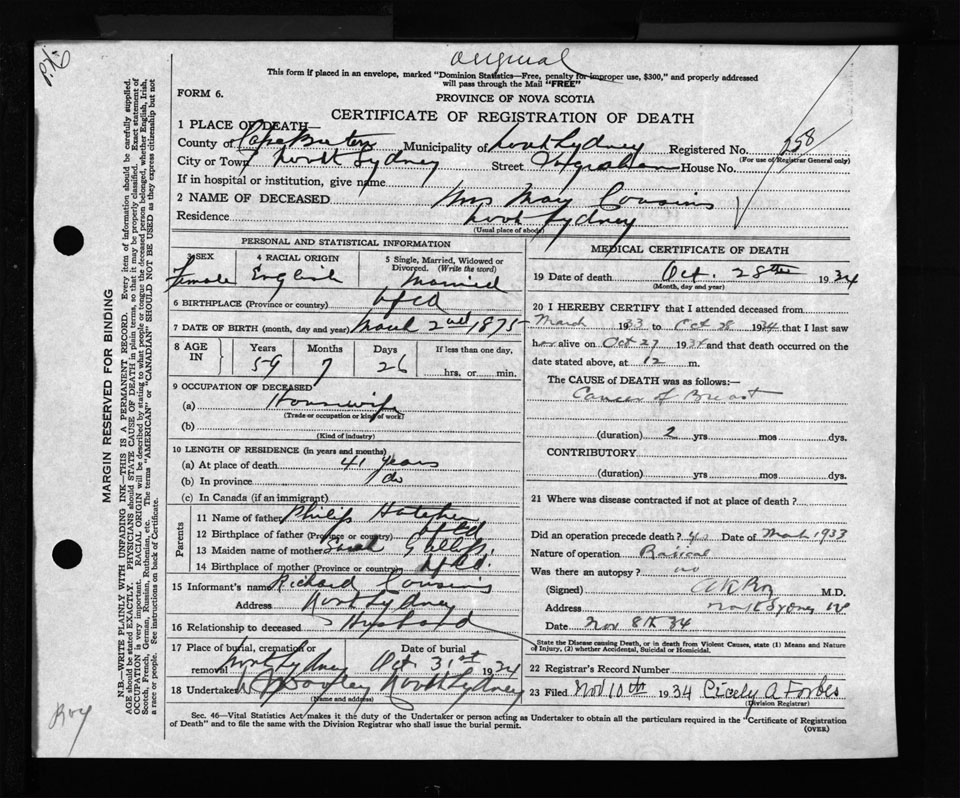 Original
This form if placed in an envelope, marked "Dominion Statistics—Free, penalty for improper use, $300," and properly addressed
will pass through the Mail "FREE"
FORM 6.
PROVINCE OF NOVA SCOTIA
CERTIFICATE OF REGISTRATION OF DEATH
1 PLACE OF DEATH—
County of Cape Breton Municipality of North Sydney Registered No. 258
(For use of Registrar General only)
City or Town North Sydney Street House No.
If in hospital or institution, give name
2 NAME OF DECEASED Mrs May Cousins
Residence North Sydney
(Usual place of abode)
PERSONAL AND STATISTICAL INFORMATION
3 SEX
Female
4 RACIAL ORIGIN
English
5 Single, Married, Widowed or
Divorced. (Write the word)
Married
6 BIRTHPLACE (Province or country) Nfld
7 DATE OF BIRTH (month, day and year) March 2nd 1875
8 AGE IN
Years Months Days If less than one day,
59 7 26 hrs. or min.
9 OCCUPATION OF DECEASED
(a) Housewife
(Trade or occupation or kind of work)
(b)
(Kind of industry)
10 LENGTH OF RESIDENCE (in years and months)
(a) At place of death 41 years
(b) In province do
(c) In Canada (if an immigrant)
Parents
11 Name of father Philip
12 Birthplace of father (Province or country) Nfld
13 Maiden name of mother Sarah
14 Birthplace of mother (Province or country) Nfld.
15 Informant's name Richard Cousins
Address North Sydney
16 Relationship to deceased Husband
17 Place of burial, cremation or removal North Sydney
Date of burial Oct 31st 1934
18 Undertaker North Sydney
(Name and address)
MEDICAL CERTIFICATE OF DEATH
19 Date of death Oct. 28th 1934
(Month, day and year)
20 I HEREBY CERTIFY that I attended deceased from
March 1933 to Oct 28 1934 that I last saw
her alive on Oct 27 1934 and that death occurred on the
date stated above, at 12 m.
The CAUSE of DEATH was as follows:—
Cancer of Breast
(duration) 2 yrs mos dys.
CONTRIBUTORY
(duration) yrs mos dys.
21 Where was disease contracted if not at place of death?
Did an operation precede death? yes Date of March 1933
Nature of operation Radical
Was there an autopsy? no
(Signed) M.D.
Address North Sydney
Date Nov 8th 34
State the Disease causing Death, or in Death from Violent Causes, state (1) Means and Nature
of Injury, (2) whether Accidental, Suicidal or Homicidal.
22 Registrar's Record Number
23 Filed Nov 10th 1934 Cicely A Forbes
(Division Registrar)
Sec. 46—Vital Statistics Act makes it the duty of the Undertaker or person acting as Undertaker to obtain all the particulars required in the "Certificate of Registration
of Death" and to file the same with the Division Registrar who shall issue the burial permit.
(OVER)
MARGIN RESERVED FOR BINDING
N.B.—WRITE PLAINLY WITH UNFADING INK—THIS IS A PERMANENT RECORD. Every item of information should be carefully supplied.
AGE should be stated EXACTLY. PHYSICIANS should STATE CAUSE OF DEATH in plain terms, so that it may be properly classified. Exact statement of
OCCUPATION is very important. RACIAL ORIGIN will be described by stating to what people or tongue the deceased person belonged, whether English, Irish,
Scotch, French, German, Russian, Ruthenian, etc. The terms "AMERICAN" or "CANADIAN" SHOULD NOT BE USED as they express citizenship but not
a race or people. See instructions on back of Certificate.
Roy